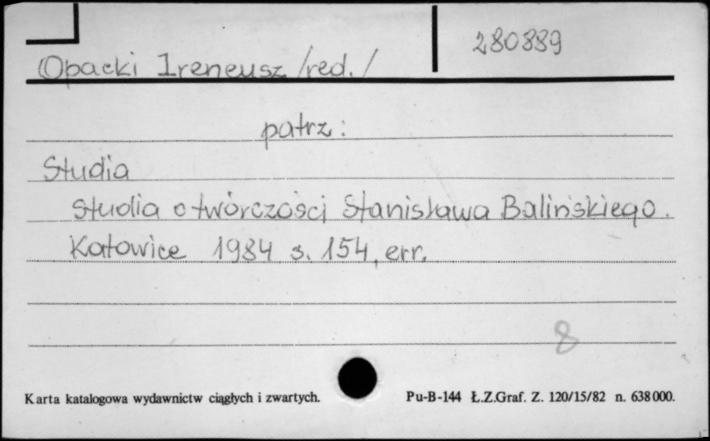 280889
Opacki Ireneusz /red./
patrz:
Studia
Studia o twórczości Stanisława Balińskiego.
Katowice 1984 s. 154, err.
8
Karta katalogowa wydawnictw ciągłych i zwartych. Pu-B-144 Ł.Z.Graf. Z. 120/15/82 n. 638000.